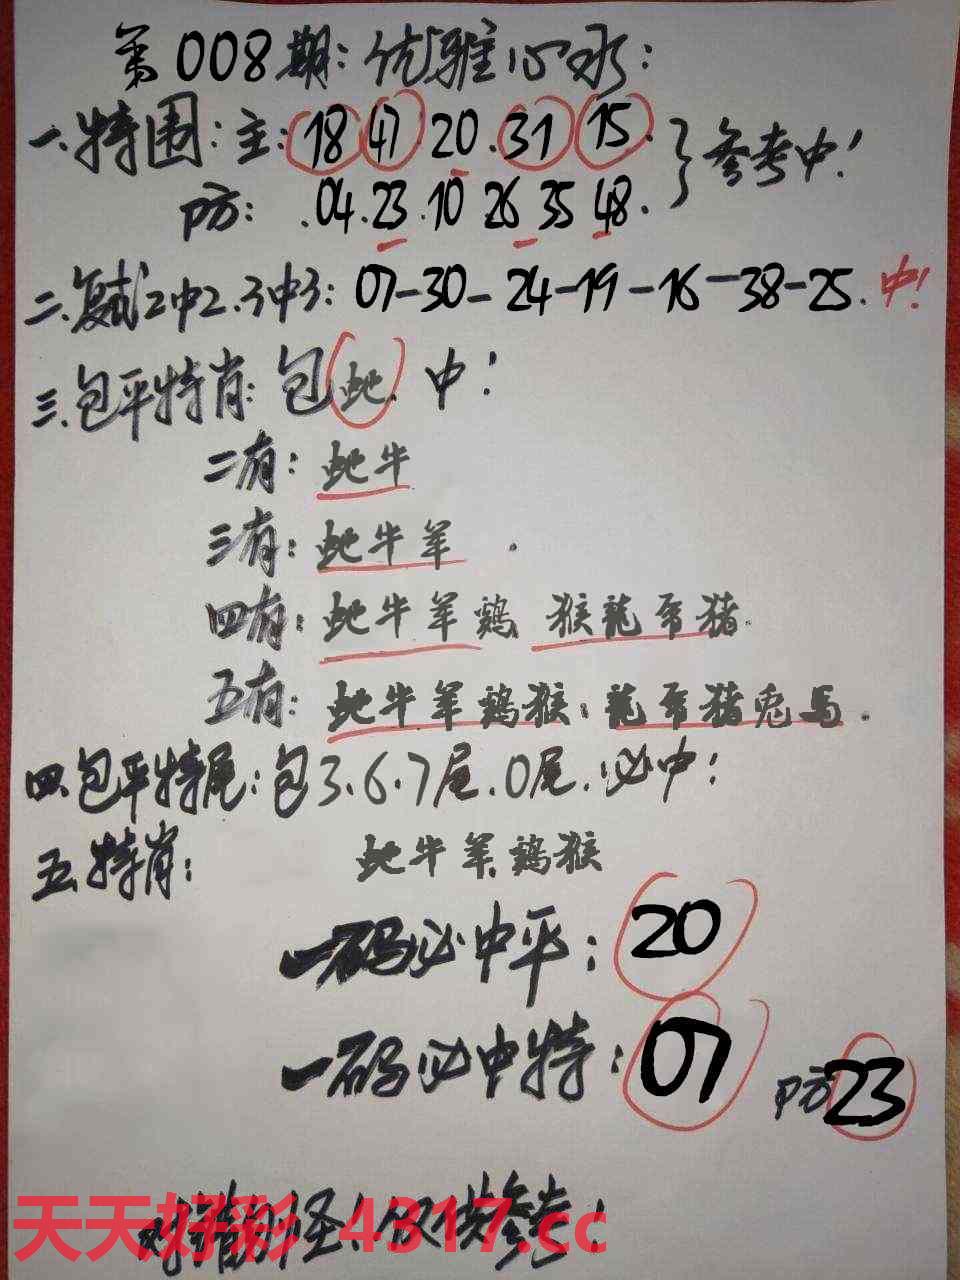 第008期：优雅心水：
一.特围：主：18 47 20.31 15.
防：.04.23.10 26 35 48.
}参考中！
二.复式2中2.3中3：07-30-24-19-16-38-25.中！
三.包平特肖：包蛇.中！
二有：蛇牛
三有：蛇牛羊.
四有：蛇牛羊鷄 猴龍虎猪.
五有：蛇牛羊鷄猴：龍虎猪兎馬.
四.包平特尾：包3.6.7尾.0尾.必中！
五.特肖：蛇牛羊.鷄猴
一码必中平：20
一码必中特：07 防23
对错勿怪！仅供参考！
天天好彩 4317.cc